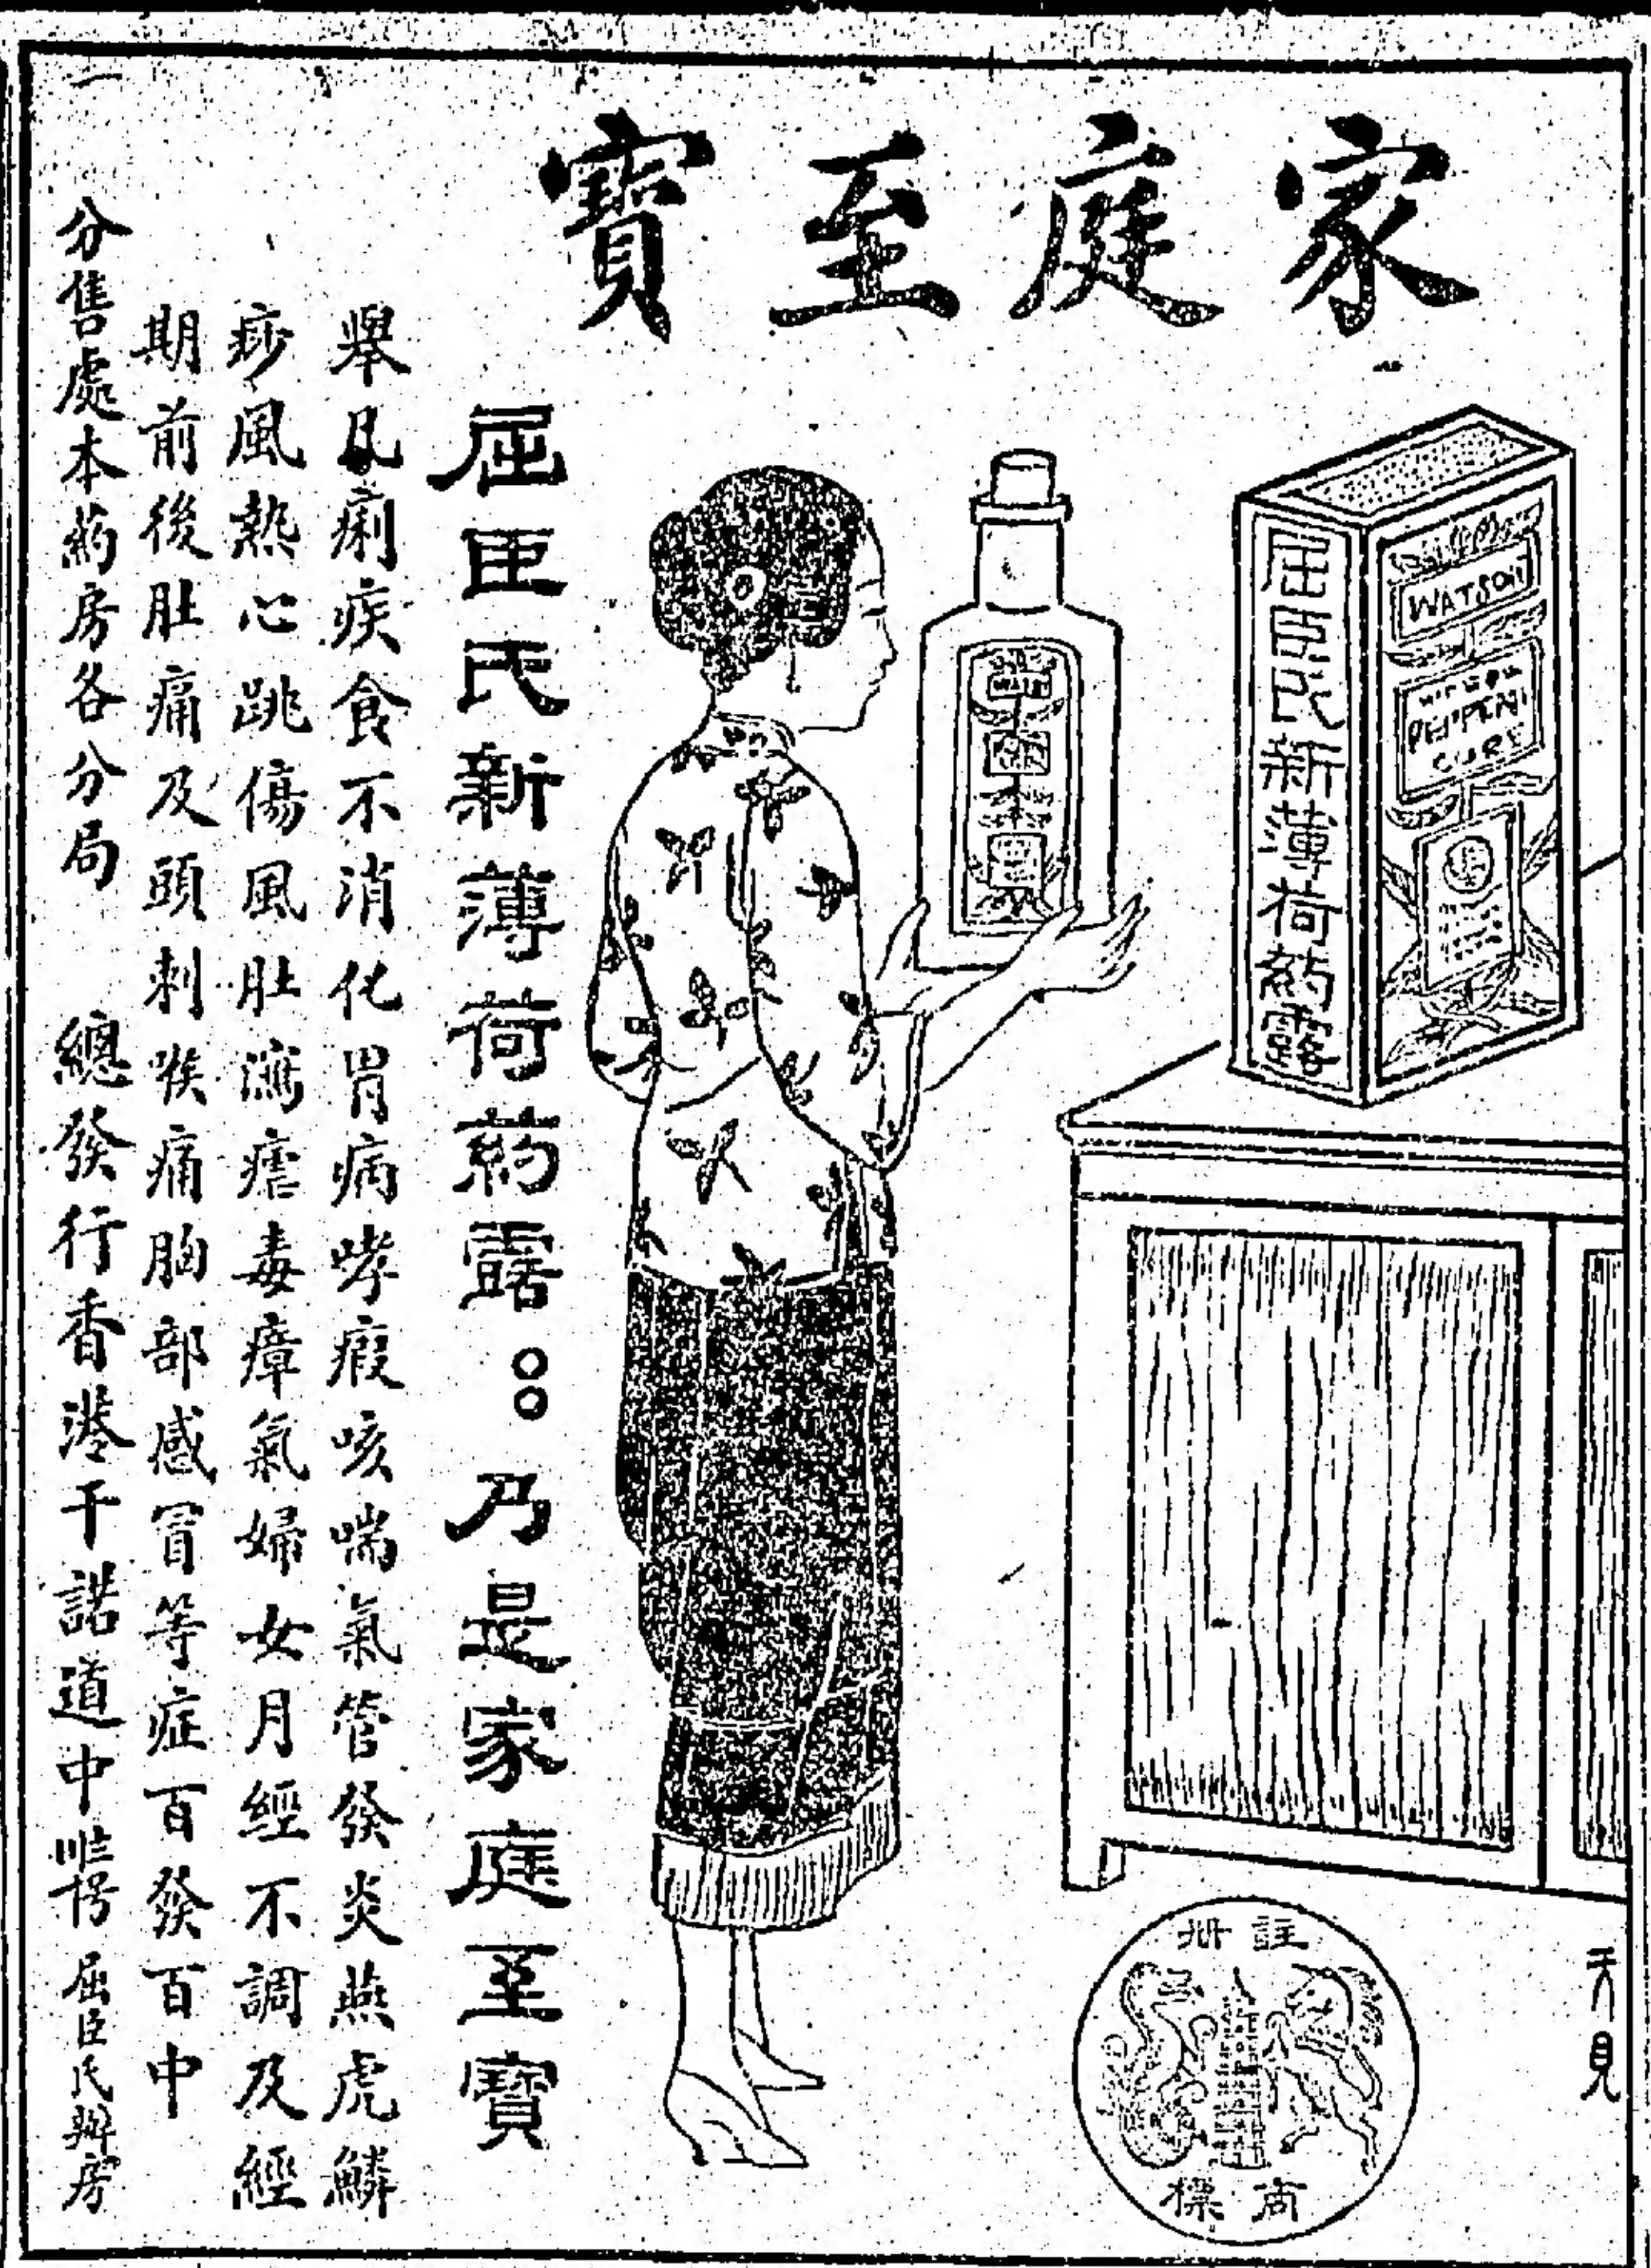 家庭至寶
WATSON
CURE
屈臣氏新薄荷葯露
屈臣氏新薄荷葯露。。乃是家庭至寶
舉凡痢疾食不消化胃病哮瘕咳喘氣管發炎燕虎鱗
痧風熱心跳傷風肚瀉瘧毒瘴氣婦女月經不調及經
期前後肚痛及頭刺喉痛胸部感冒等症百發百中
分售處本葯房各分局 總發行香港干諾道中 屈臣氏辦房
註册
商標
天見